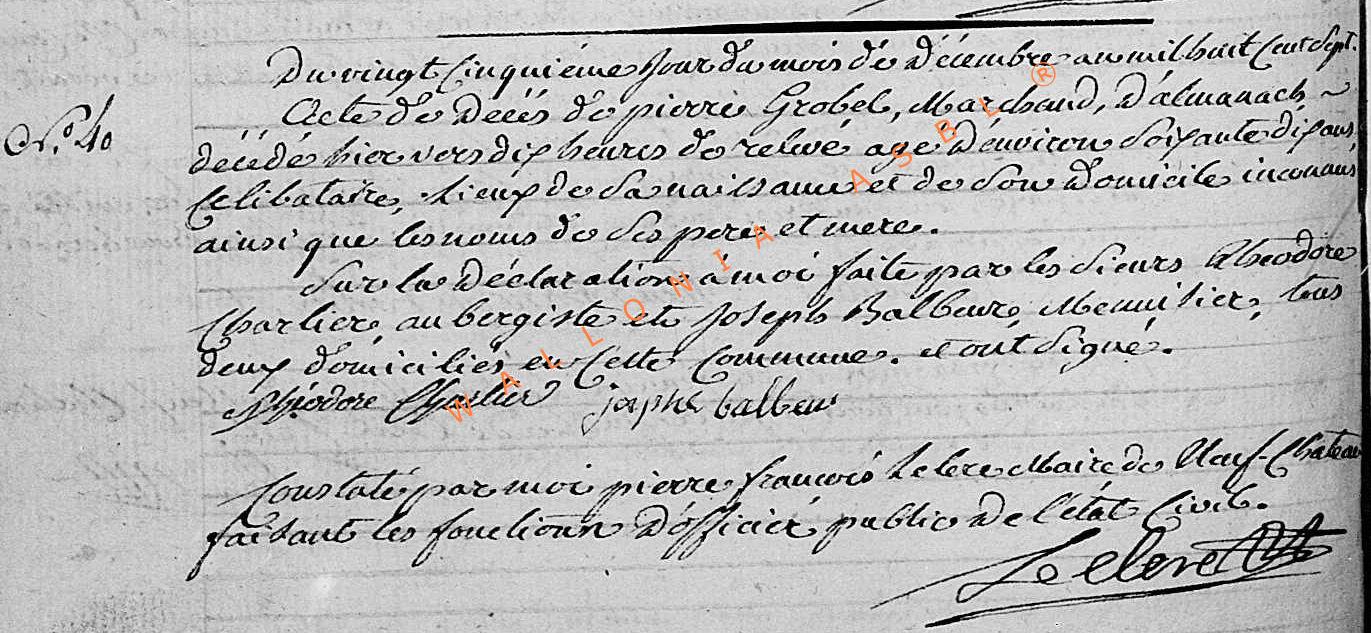 Du vingt Cinquiéme Jour du mois de Décembre an mil huit Cent Sept.
N.º 40
Acte de Décés de pierre Grobel, Marchand, D'almanach ~
décédé hier vers dix heures de relevé agé D'environ Soixante dix ans
Celibataire, Lieux de Sa naissance et de Son Domicile inconnus
ainsi que les noms de Ses pere et mere.
Sur la Déclaration à moi faite par les Sieurs Théodore
Charlier, aubergiste et Joseph Balbeur, Menuisier, tous
deux domiciliés en Cette Commune. et ont Signé.
Théodore Charlier joseph balbeur
Constaté par moi pierre françois Leclerc Maire de Neuf-Chateau
faisant les fonctions D'officier public De l'état Civil.
Leclerc
WALLONIA ASBL ®